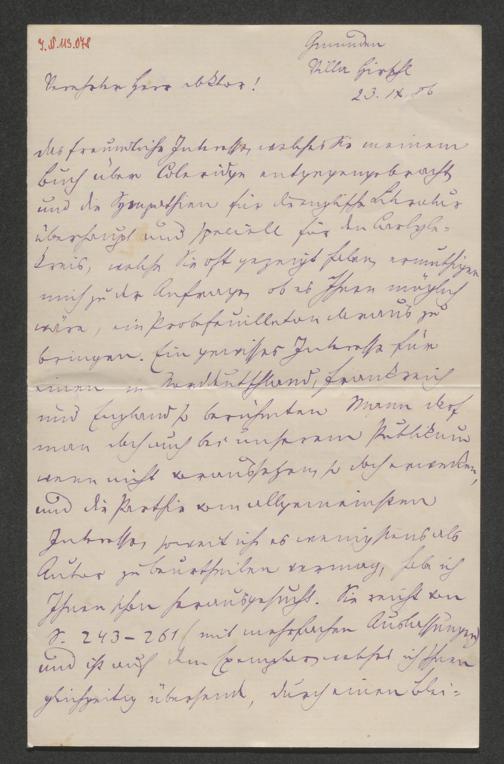 I.N. 115.078
Gmunden
Villa Hirschl
23. IX 06
Verehrter Herr Doktor!
das freundliche Interesse, welches Sie meinem
Buch über Coleridge entgegengebracht
und die Sympathien für die englische Literatur
überhaupt und speciell für den Carlyle-
kreis, welche Sie oft gezeigt haben, ermuthigen
mich zu der Anfrage, ob es Ihnen möglich
wäre, ein Probefeuilleton daraus zu
bringen. Ein gewisses Interesse für
einen in Norddeutschland, Frankreich
und England so berühmten Mann darf
man doch auch bei unserem Publikum
wenn nicht voraussetzen, so doch erwecken,
und die Parthie vom allgemeinsten
Interesse, soweit ich es wenigstens als
Autor zu beurtheilen vermag, hab ich
Ihnen schon herausgesucht. Sie reicht von
S. 243-261 (mit mehrfachen Auslassungen)
und ist auf dem Exemplar, welches ich Ihnen
gleichzeitig übersende, durch einen Blei-